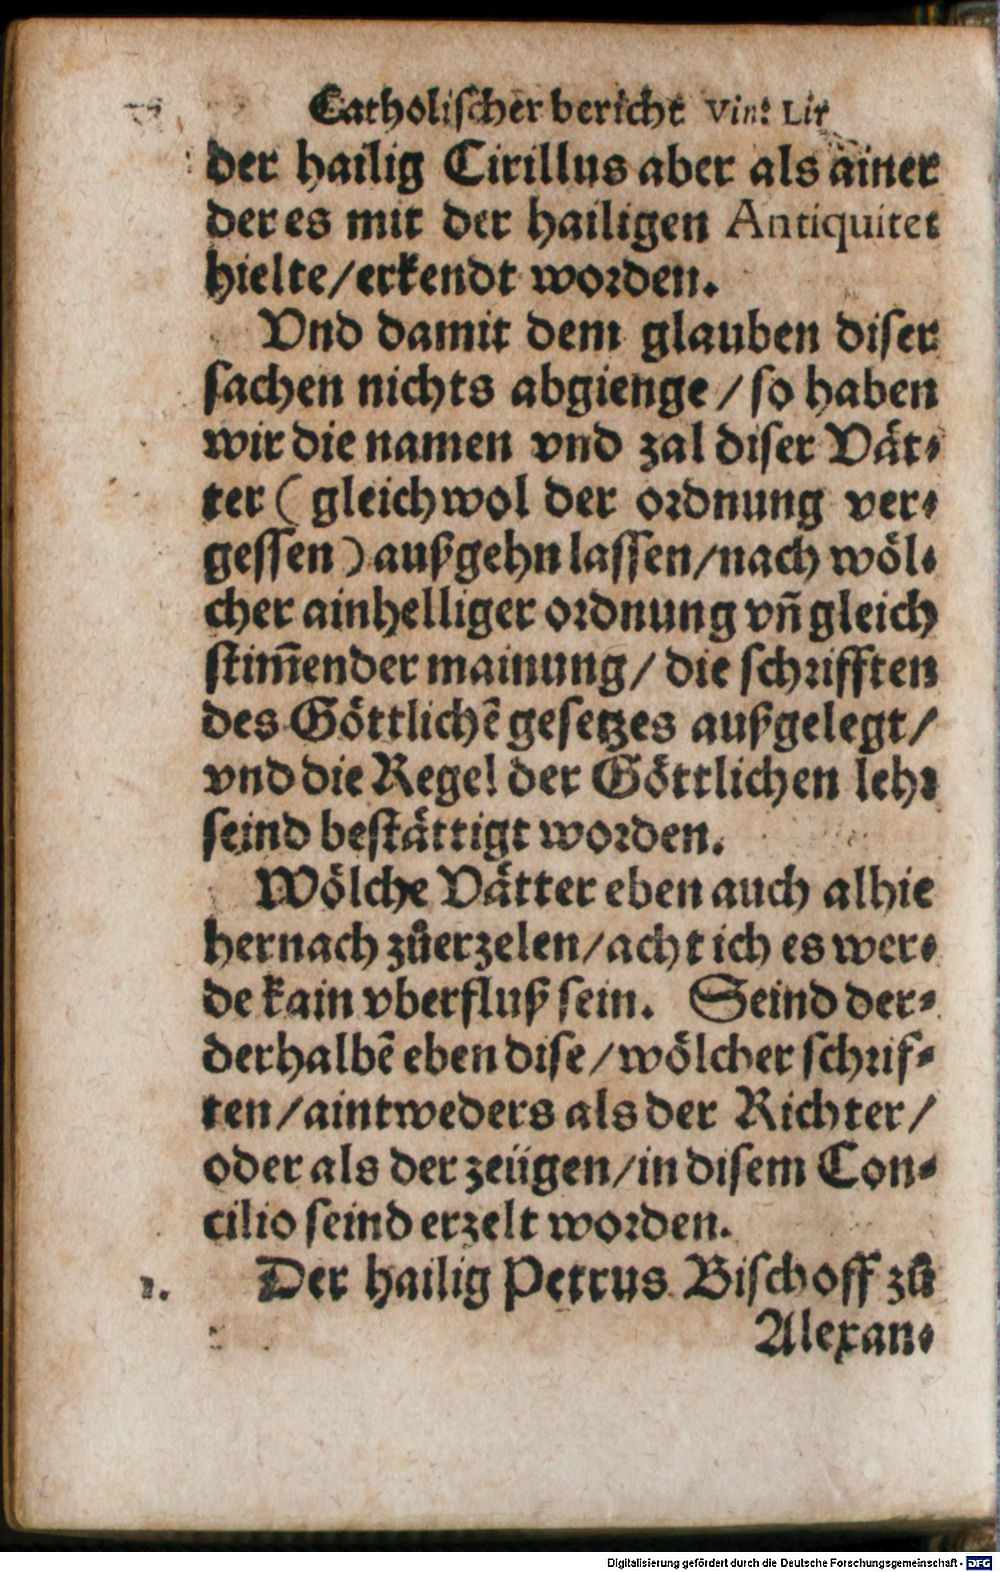 Catholischer bericht Vin: Lir
der hailig Cirillus aber als ainer
der es mit der hailigen Antiquitet
hielte/erkendt worden.
Vnd damit dem glauben diser
sachen nichts abgienge/so haben
wir die namen vnd zal diser Vät-
ter (gleichwol der ordnung ver-
gessen) außgehn lassen/nach wöl-
cher ainhelliger ordnung vñ gleich
stim̃ender mainung/die schrifften
des Göttlichẽ gesetzes außgelegt/
vnd die Regel der Göttlichen lehr
seind bestättigt worden.
Wölche Vätter eben auch alhie
hernach zůerzelen/acht ich es wer-
de kain vberfluß sein. Seind der-
derhalbẽ eben dise/wölcher schrif-
ten/aintweders als der Richter/
oder als der zeügen/in disem Con-
cilio seind erzelt worden.
1. Der hailig Petrus Bischoff zů
Alexan-
Digitalisierung gefördert durch die Deutsche Forschungsgemeinschaft - DFG